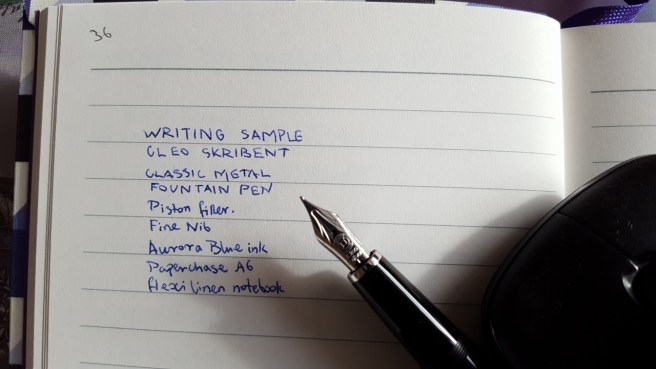 36
WRITING SAMPLE
CLEO SKRIBENT
CLASSIC METAL
FOUNTAIN PEN
Piston filler.
Fine Nib
Aurora Blue ink
Paperchase A6
flexi linen notebook